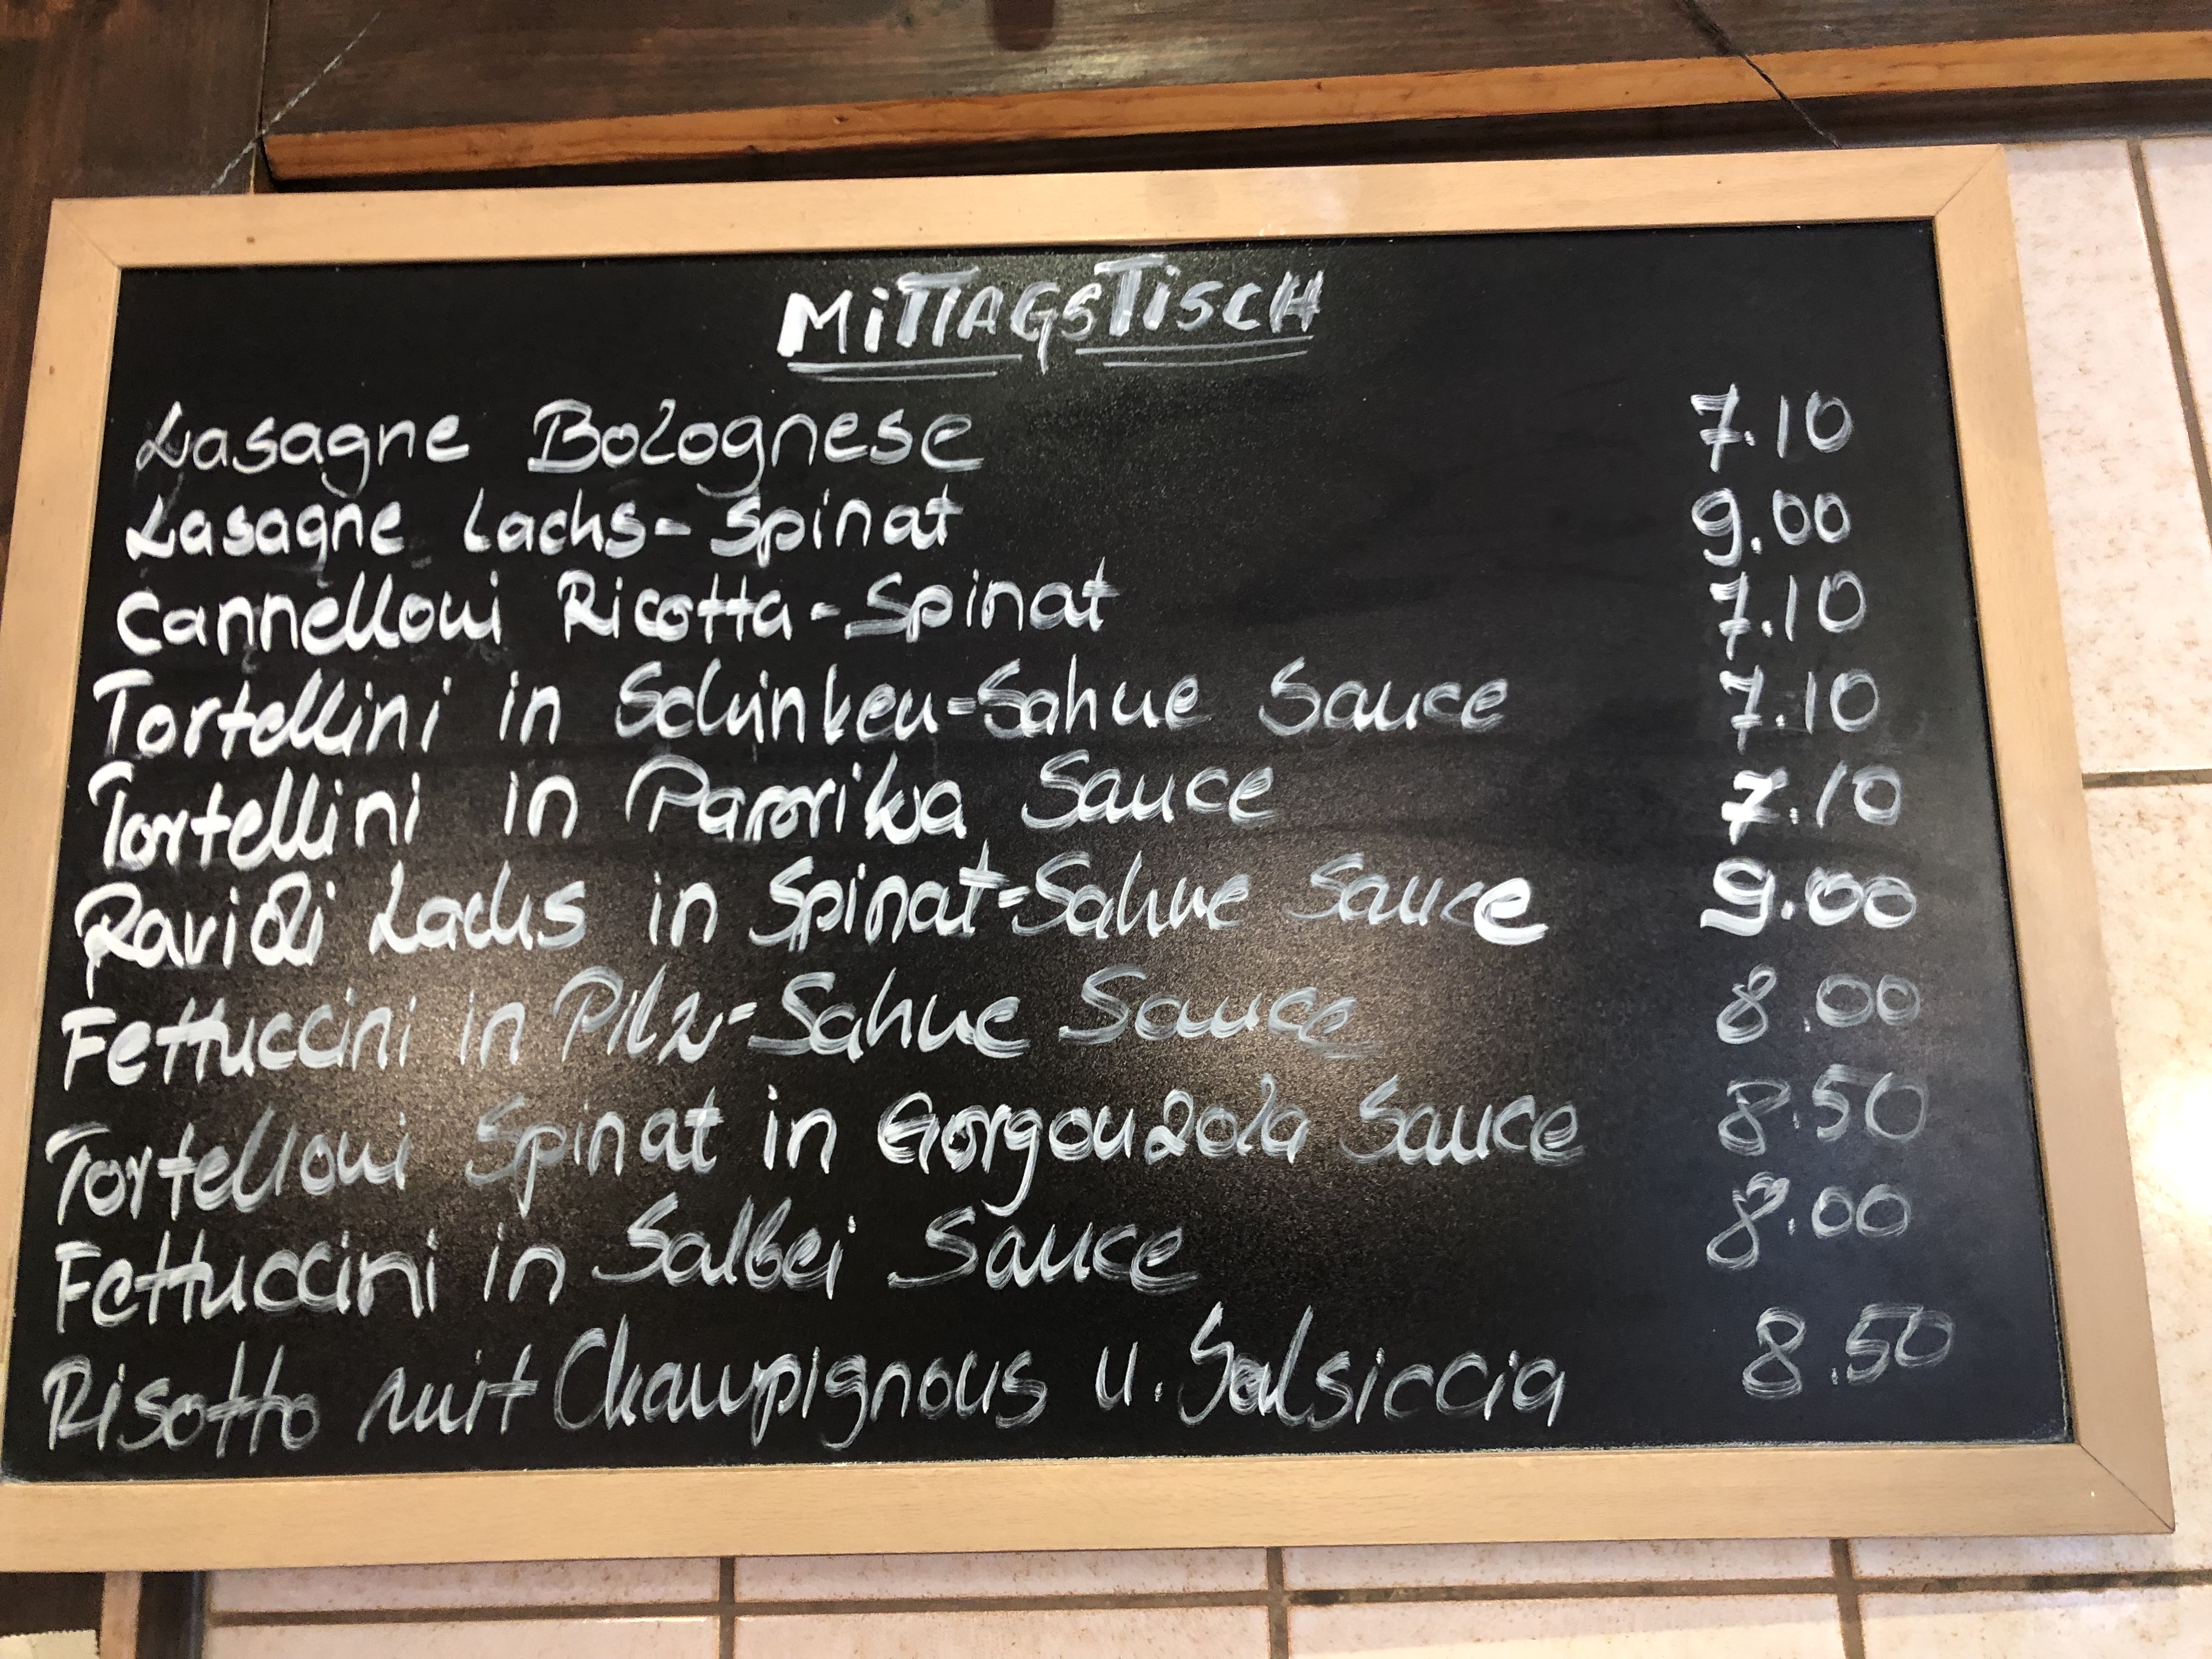 MITTAGSTISCH
Lasagne Bolognese 7.10
Lasagne Lachs-Spinat 9.00
Cannelloni Ricotta-Spinat 7.10
Tortellini in Schinken-Sahne Sauce 7.10
Tortellini in Paprika Sauce 7.10
Ravioli Lachs in Spinat-Sahne Sauce 9.00
Fettuccini in Pilz-Sahne Sauce 8.00
Tortelloni Spinat in Gorgonzola Sauce 8.50
Fettuccini in Salbei Sauce 8.00
Risotto mit Champignons u. Salsiccia 8.50